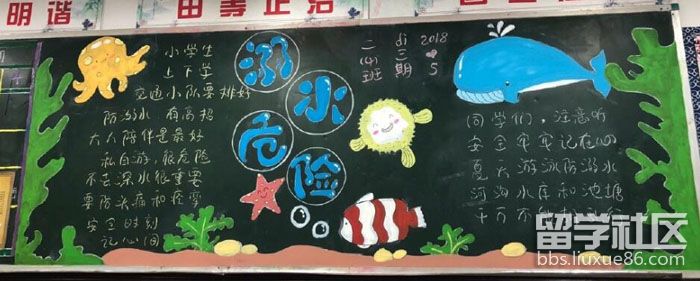 明谐
小学生
上下学
交通小队要排好
防溺水 有高招
大人陪伴是最好
私自游，很危险
不去深水很重要
要防头痛和痉挛
安全时刻
记心间
溺水
危险
二(4)班
di 三期
2018
5
同学们，注意听
安全牢牢记在心
夏天游泳防溺水
河沟水库和池塘
千万不
留学社区
bbs.liuxue86.com